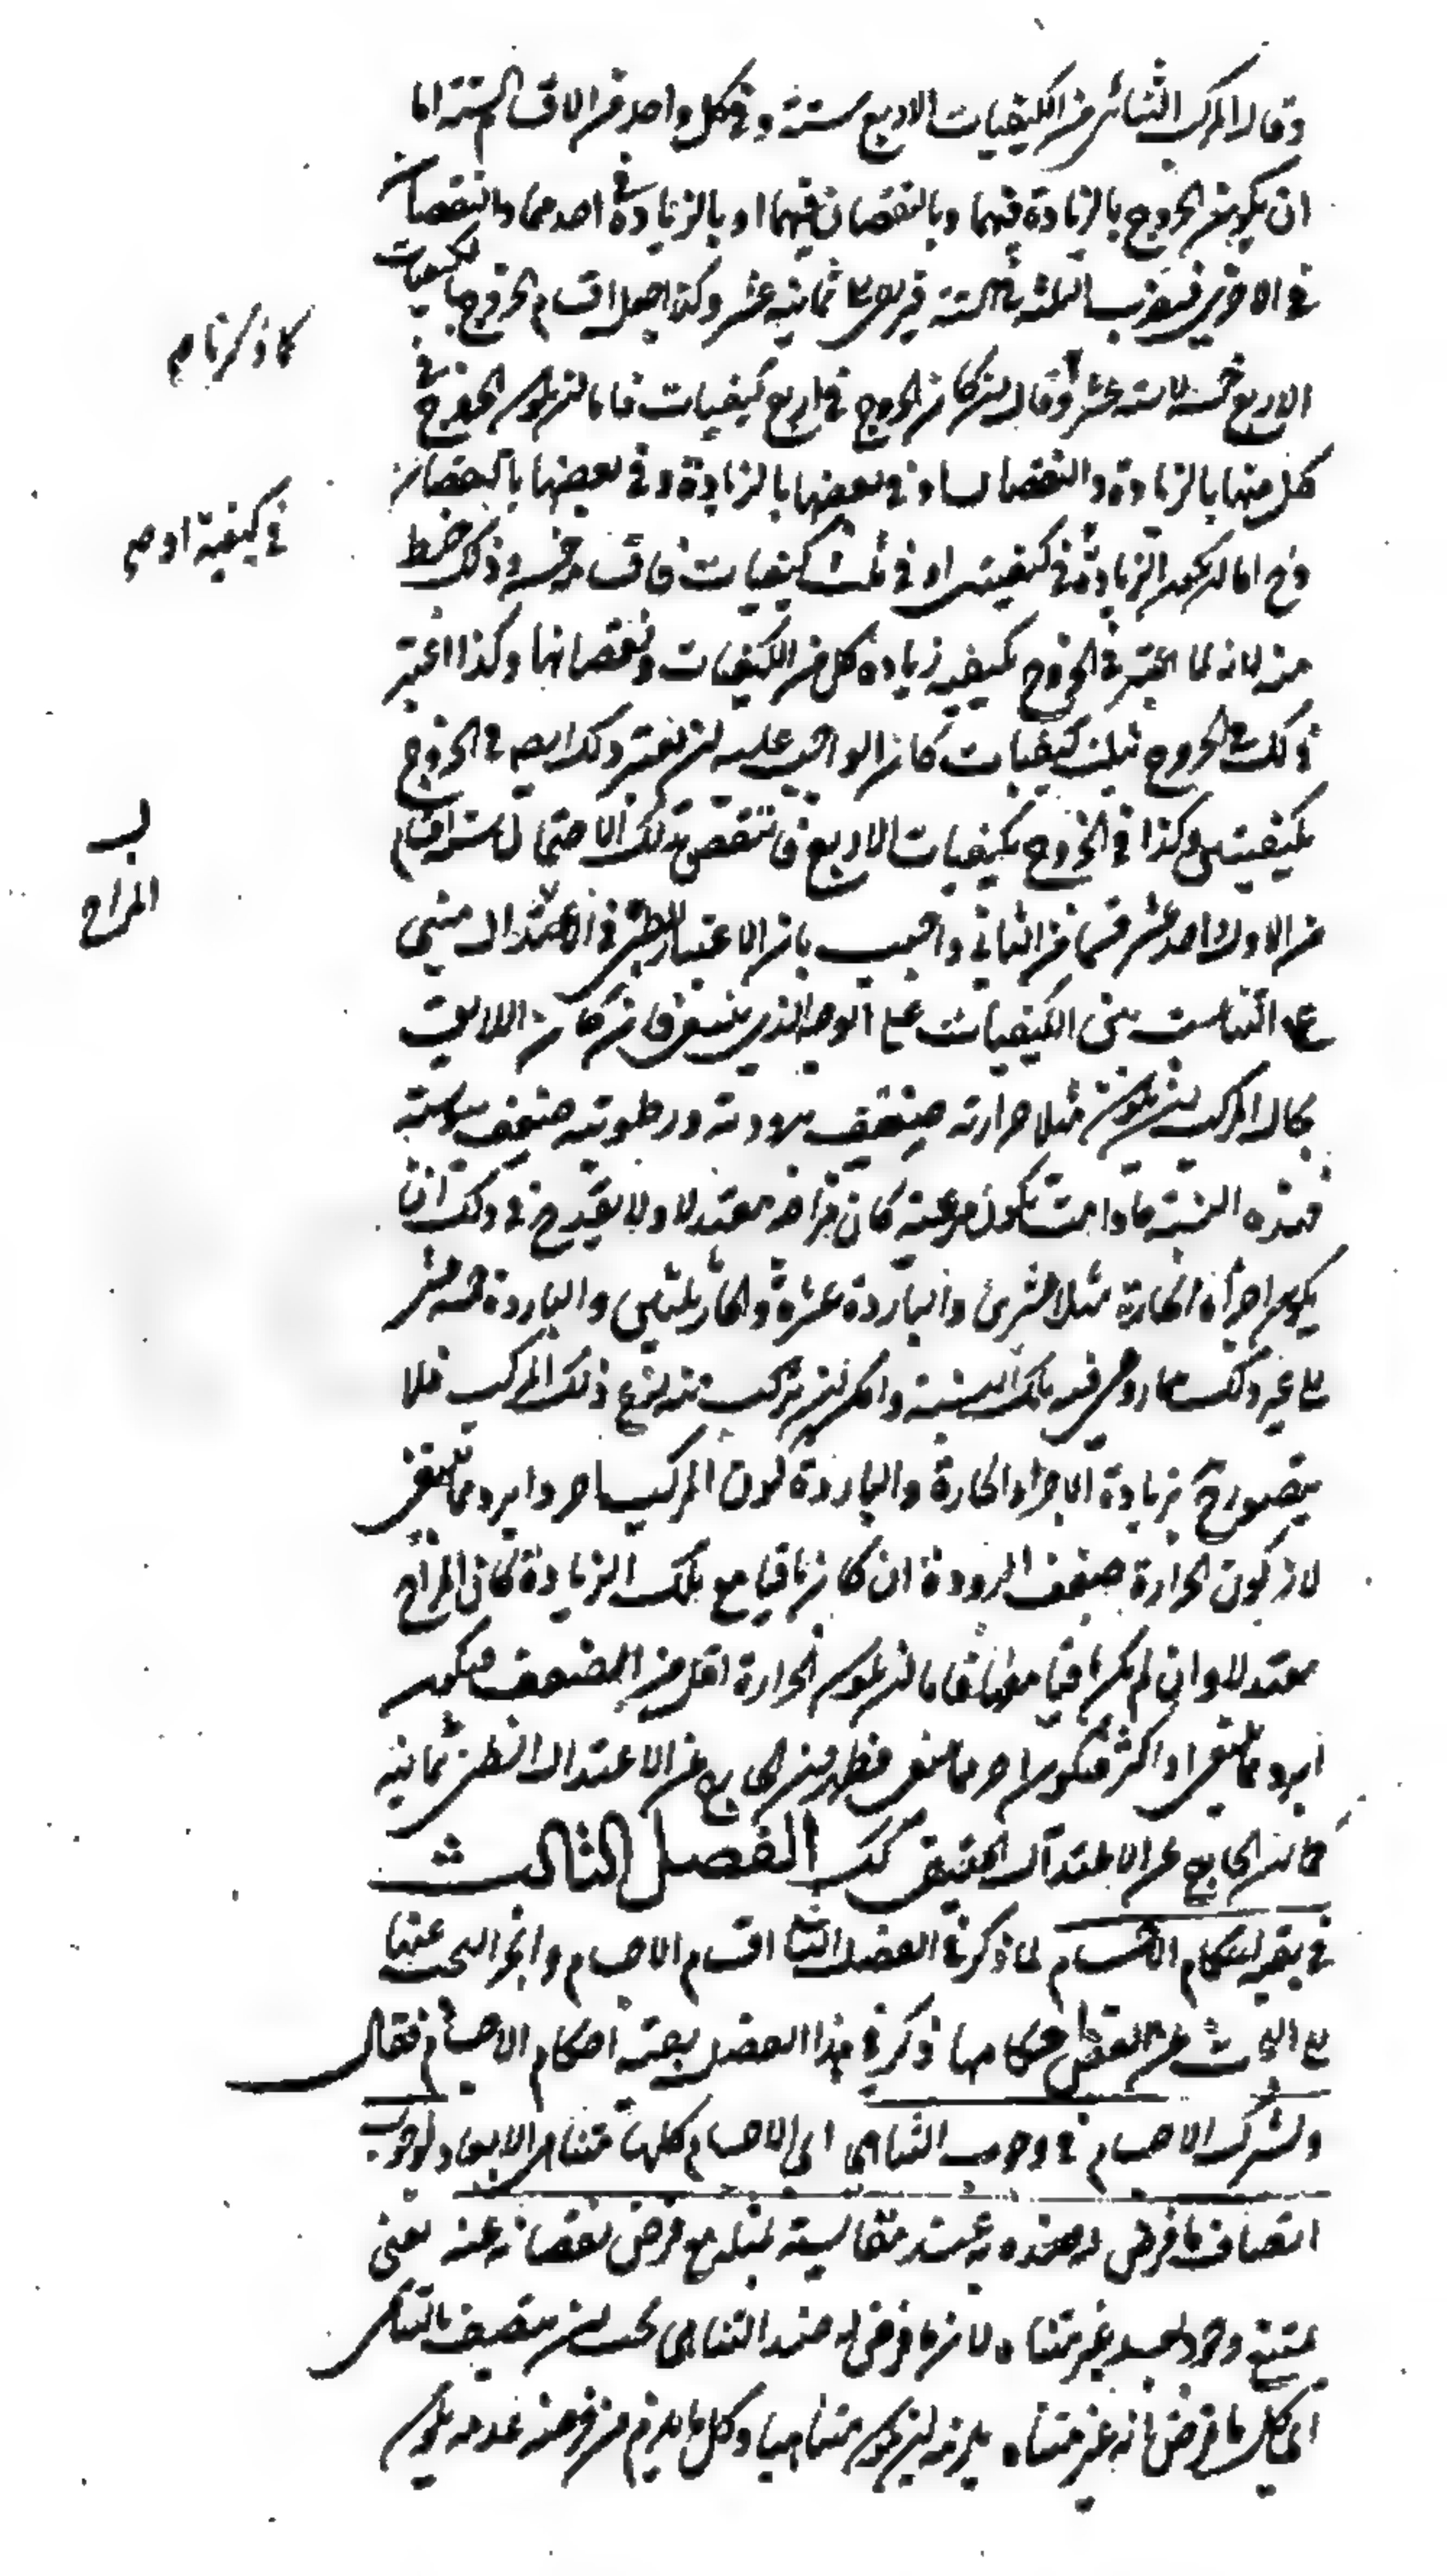 وقال المركب الثنائي من الكيفيات الاربع ستة وفي كل واحد من الاقسام الستة اما
ان يكون الخروج بالزيادة فيهما وبالنقصان فيهما او بالزيادة في احدهما والنقصان
في الاخرى فيضرب الثلثة في الستة ثمانية عشر وكذا جعل اقسام الخروج بالكيفيات
كما ذكرنا صح
الاربع خمسة لا ستة عشر وقال ان كان الخروج في اربع كيفيات فاما ان يكون الخروج في
كل منها بالزيادة والنقصان او في بعضها بالزيادة وفي بعضها بالنقصان
في كيفية او صح
وح اما ان يكون الزيادة في كيفيتين او في ثلث كيفيات فاقسامه خمسة وذلك خبط
منه لانه لما اعتبر في الخروج بكيفية زيادة كل من الكيفيات ونقصانها وكذا اعتبر
ذلك في الخروج بثلث كيفيات كان الواجب عليه ان يعتبر ذلك ايضا في الخروج
بكيفيتين وكذا في الخروج بكيفيات الاربع فانتقص بذلك الاحتمال ستة اقسام
من الاول واحد عشر قسما من الثاني واجيب بان الاعتبار الطبي في الاعتدال مبني
المزاج
على التناسب بين الكيفيات على الوجه الذي ينبغي فان كان اللايق
بحال المركب ان يكون مثلا حرارته ضعف برودته ورطوبته ضعف يبوسته
فهذه النسبة ما دامت تكون مرعية كان مزاجه معتدلا ولا يقدح في ذلك ان
يكون اجزاؤه الحارة مثلا عشرين والباردة عشرة والحارة ثلثين والباردة خمسة عشر
الى غير ذلك مما روعي فيه تلك النسبة وامكن ان يتركب منه نوع ذلك المركب فلا
يتصور ح بزيادة الاجزاء الحارة والباردة كون المركب احر وابرد مما ينبغي
لان كون الحرارة ضعف البرودة ان كان باقيا مع تلك الزيادة كان المزاج
معتدلا وان لم يكن باقيا معها فاما ان يكون الحرارة اقل من الضعف فيكون
ابرد مما ينبغي او اكثر فيكون احر مما ينبغي فظهر ان الخارج عن الاعتدال الطبي ثمانية
كما ان الخارج عن الاعتدال الحقيقي كذلك الفصل الثالث
في بقية احكام الاجسام لما ذكر في الفصل الثاني اقسام الاجسام وانجر البحث عنها
الى البحث عن بعض احكامها ذكر في هذا الفصل بقية احكام الاجسام فقال
وتشترك الاجسام في وجوب التناهي اي الاجسام كلها متناهي الابعاد لوجوب
اتصاف ما فرض له ضده به عند مقايسته بمثله مع فرض نقصانه عنه يعني
يمتنع وجود جسم غير متناه لان ما فرض له ضد التناهي يجب ان يتصف بالتناهي
اي كل ما فرض انه غير متناه يلزمه ان يكون متناهيا وكل ما يلزم من فرضه عدمه يكون